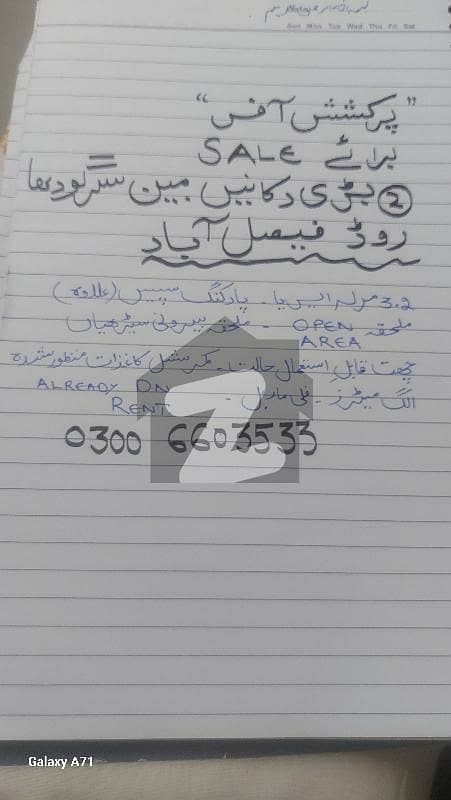 Sun Mon Tue Wed Thu Fri Sat
"پرکشش آفر"
برائے SALE
② بڑی دکانیں مین سرگودھا
روڈ فیصل آباد
3.2 مرلہ ایریا - پارکنگ سپیس (علاوہ)
ملحقہ OPEN AREA - ملحقہ بیرونی سیڑھیاں
چھت قابلِ استعمال حالت - کمرشل کاغذات منظور شدہ
الگ میٹرز - فل ماربل - ALREADY ON RENT
0300 6603533
Galaxy A71